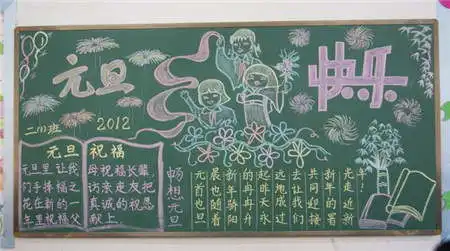 元旦
快乐
二(1)班
2012
元旦 祝福
元旦里让我
们手捧福之
花在新的一
年里祝福父
母祝福长辈
访亲走友把
真诚的祝愿
献上
畅想元旦
元首也旦
晨也随着
新年骄阳
的冉冉升
起昨天永
远地成过
去让我们
共同迎接
新年的署
光走近新
年!